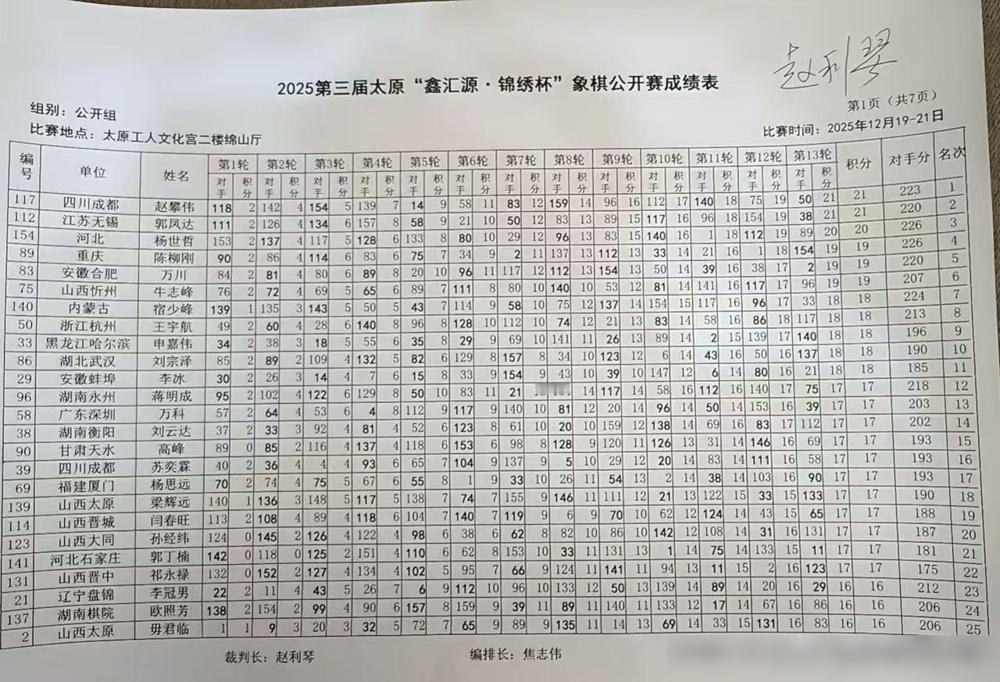 赵利琴
2025第三届太原“鑫汇源·锦绣杯”象棋公开赛成绩表
组别：公开组
第1页（共7页）
比赛地点：太原工人文化宫二楼绵山厅
比赛时间：2025年12月19-21日
编号 单位 姓名 第1轮 第2轮 第3轮 第4轮 第5轮 第6轮 第7轮 第8轮 第9轮 第10轮 第11轮 第12轮 第13轮 积分 对手分 名次
对手 积分 对手 积分 对手 积分 对手 积分 对手 积分 对手 积分 对手 积分 对手 积分 对手 积分 对手 积分 对手 积分 对手 积分 对手 积分
117 四川成都 赵攀伟 118 2 142 4 154 5 139 7 14 9 58 11 83 12 159 14 96 16 112 17 140 18 75 19 50 21 21 223 1
112 江苏无锡 郭凤达 111 2 126 4 134 6 157 8 58 9 21 10 50 12 83 13 89 15 117 16 96 18 154 19 38 21 21 220 2
154 河北 杨世哲 153 2 137 4 117 5 128 6 133 8 80 10 29 12 96 13 83 15 140 16 1 18 112 19 89 20 20 226 3
89 重庆 陈柳刚 90 2 86 4 114 6 83 6 75 7 34 9 2 11 137 13 112 13 33 14 21 16 1 18 154 19 19 226 4
83 安徽合肥 万川 84 2 81 4 80 6 89 8 20 10 96 11 117 12 112 13 154 13 50 14 39 16 38 17 2 19 19 220 5
75 山西忻州 牛志峰 76 2 72 4 69 5 65 7 89 7 111 8 80 10 140 10 53 12 81 14 141 16 117 17 96 19 19 207 6
140 内蒙古 宿少峰 139 1 135 3 143 5 50 5 43 7 114 9 58 10 75 12 137 14 154 15 117 16 96 17 33 18 18 224 7
50 浙江杭州 王宇航 49 2 60 4 28 6 140 8 96 8 128 10 112 10 74 12 21 13 83 14 58 16 86 18 117 18 18 213 8
33 黑龙江哈尔滨 申嘉伟 34 2 38 3 18 5 55 6 35 8 29 9 69 10 141 11 26 13 89 14 2 15 139 17 140 18 18 196 9
86 湖北武汉 刘宗泽 85 2 89 2 109 4 132 5 82 6 129 8 157 8 34 10 123 12 6 14 43 16 50 16 137 18 18 190 10
29 安徽蚌埠 李冰 30 2 26 3 14 4 7 6 15 8 33 9 154 9 43 10 39 10 147 12 6 14 80 16 21 18 18 185 11
96 湖南永州 蒋明成 95 2 102 4 122 6 129 8 50 10 83 11 21 14 117 14 58 16 112 16 140 17 75 17 17 218 12
58 广东深圳 万科 57 2 64 4 53 6 4 8 112 9 117 9 140 10 81 12 20 14 96 14 50 14 153 16 39 17 17 203 13
38 湖南衡阳 刘云达 37 2 33 3 92 4 81 4 52 6 123 8 61 10 20 10 159 12 138 14 69 16 83 17 112 17 17 202 14
90 甘肃天水 高峰 89 0 85 2 116 4 137 4 118 6 153 6 98 8 128 9 120 11 126 13 31 14 146 16 69 17 17 193 15
39 四川成都 苏奕霖 40 2 36 4 4 4 93 6 65 7 104 9 137 9 5 10 29 12 20 14 83 14 111 16 58 17 17 193 16
69 福建厦门 杨思远 70 2 74 4 75 5 67 6 55 8 1 9 33 10 26 11 54 13 2 14 38 14 103 16 90 17 17 193 17
139 山西太原 梁辉远 140 1 136 3 148 5 117 5 138 7 74 7 155 9 146 11 111 12 21 13 122 15 33 15 133 17 17 190 18
114 山西晋城 闫春旺 113 2 108 4 89 4 118 6 104 7 140 7 119 9 6 9 70 10 62 12 124 14 43 15 65 17 17 188 19
123 山西大同 孙经纬 124 0 145 2 126 4 122 4 98 6 38 6 62 8 82 10 86 10 142 12 108 14 31 16 131 17 17 187 20
141 河北石家庄 郭丁楠 142 0 118 0 125 2 151 4 110 6 62 8 153 10 33 11 131 13 1 14 75 14 133 15 11 17 17 181 21
131 山西晋中 祁永禄 132 0 152 2 127 4 134 4 102 5 95 7 66 9 124 11 141 11 94 13 11 15 2 16 123 17 17 175 22
21 辽宁盘锦 李冠男 22 2 11 4 43 5 26 7 6 9 112 10 96 10 133 12 50 13 139 14 89 14 20 16 29 16 16 212 23
137 湖南棋院 欧照芳 138 2 154 2 99 4 90 6 157 8 159 9 39 11 89 11 140 11 133 12 17 14 67 16 86 16 16 206 24
2 山西太原 毋君临 1 1 9 3 20 3 32 5 72 7 65 9 89 9 135 11 14 10 69 14 33 15 131 16 83 16 16 206 25
裁判长：赵利琴 编排长：焦志伟